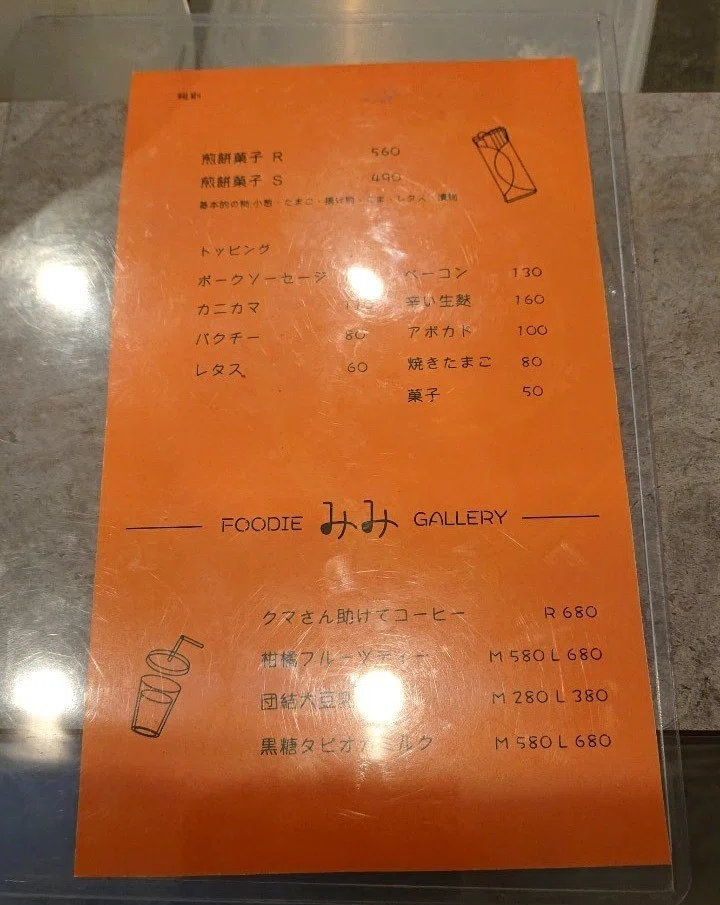 煎餅菓子 R 560
煎餅菓子 S 490
トッピング
ポークソーセージ
ベーコン 130
カニカマ
辛い生麩 160
パクチー 80
アボカド 100
レタス 60
焼きたまご 80
菓子 50
FOODIE みみ GALLERY
クマさん助けてコーヒー R 680
柑橘フルーツティー M 580 L 680
団結大豆 M 280 L 380
黒糖タピオカミルク M 580 L 680